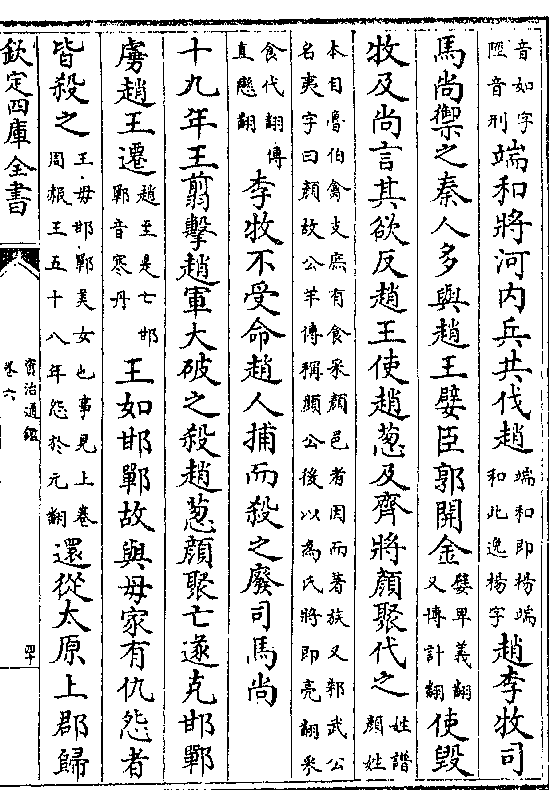 音如字
陘音刑
端和將河内兵共伐趙
端和即楊端
和此逸楊字
趙李牧司
馬尚禦之秦人多與趙王嬖臣郭開金
嬖卑義翻
又博計翻
使毁
牧及尚言其欲反趙王使趙葱及齊將顔聚代之
姓譜
顔姓
本自魯伯禽支庶有食采顔邑者因而著族又邾武公
名夷字曰顔故公羊傳稱顔公後以為氏將即亮翻采
食代翻傳
直戀翻
李牧不受命趙人捕而殺之廢司馬尚
十九年王翦擊趙軍大破之殺趙葱顔聚亡遂克邯鄲
虜趙王遷
趙至是亡邯
鄲音寒丹
王如邯鄲故與母家有仇怨者
皆殺之
王母邯鄲美女也事見上卷
周赧王五十八年怨於元翻
還從太原上郡歸
欽定四庫全書
資治通鑑
卷六
四十